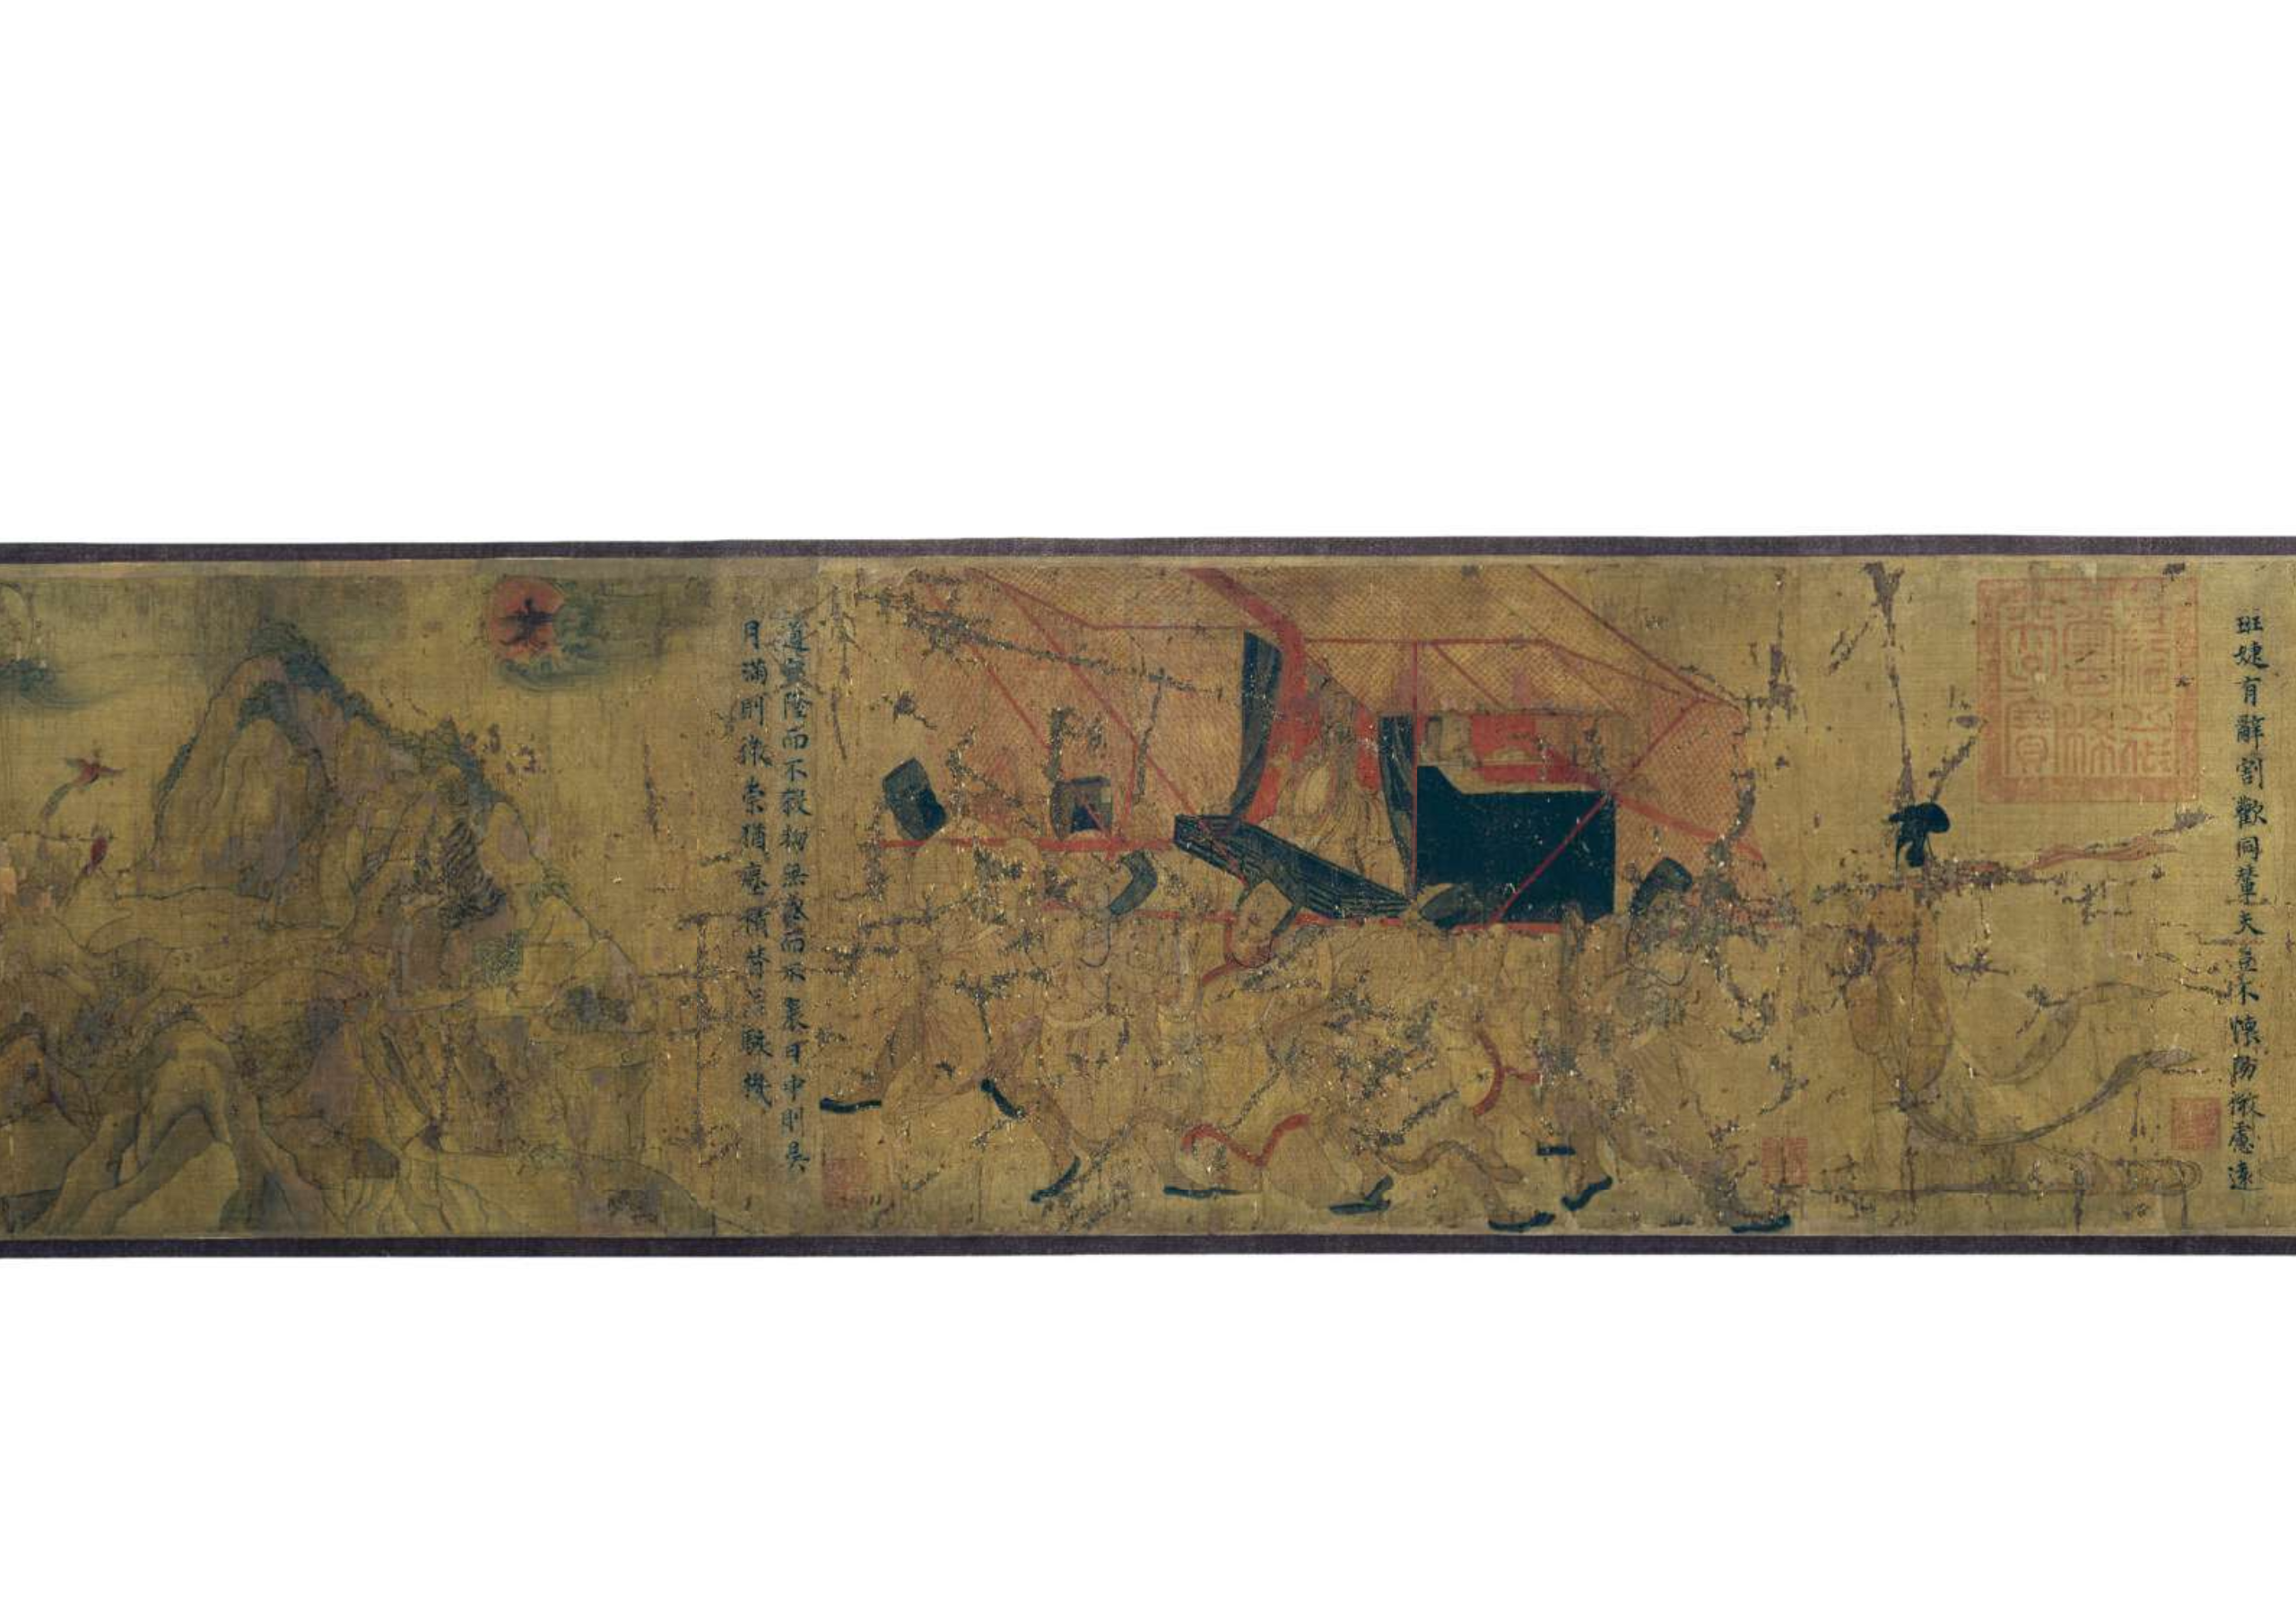 班婕有辭割歡同輦夫豈不懷防微慮遠
道罔隆而不殺物無盛而不衰日中則昃
月滿則微崇猶塵積替若駭機